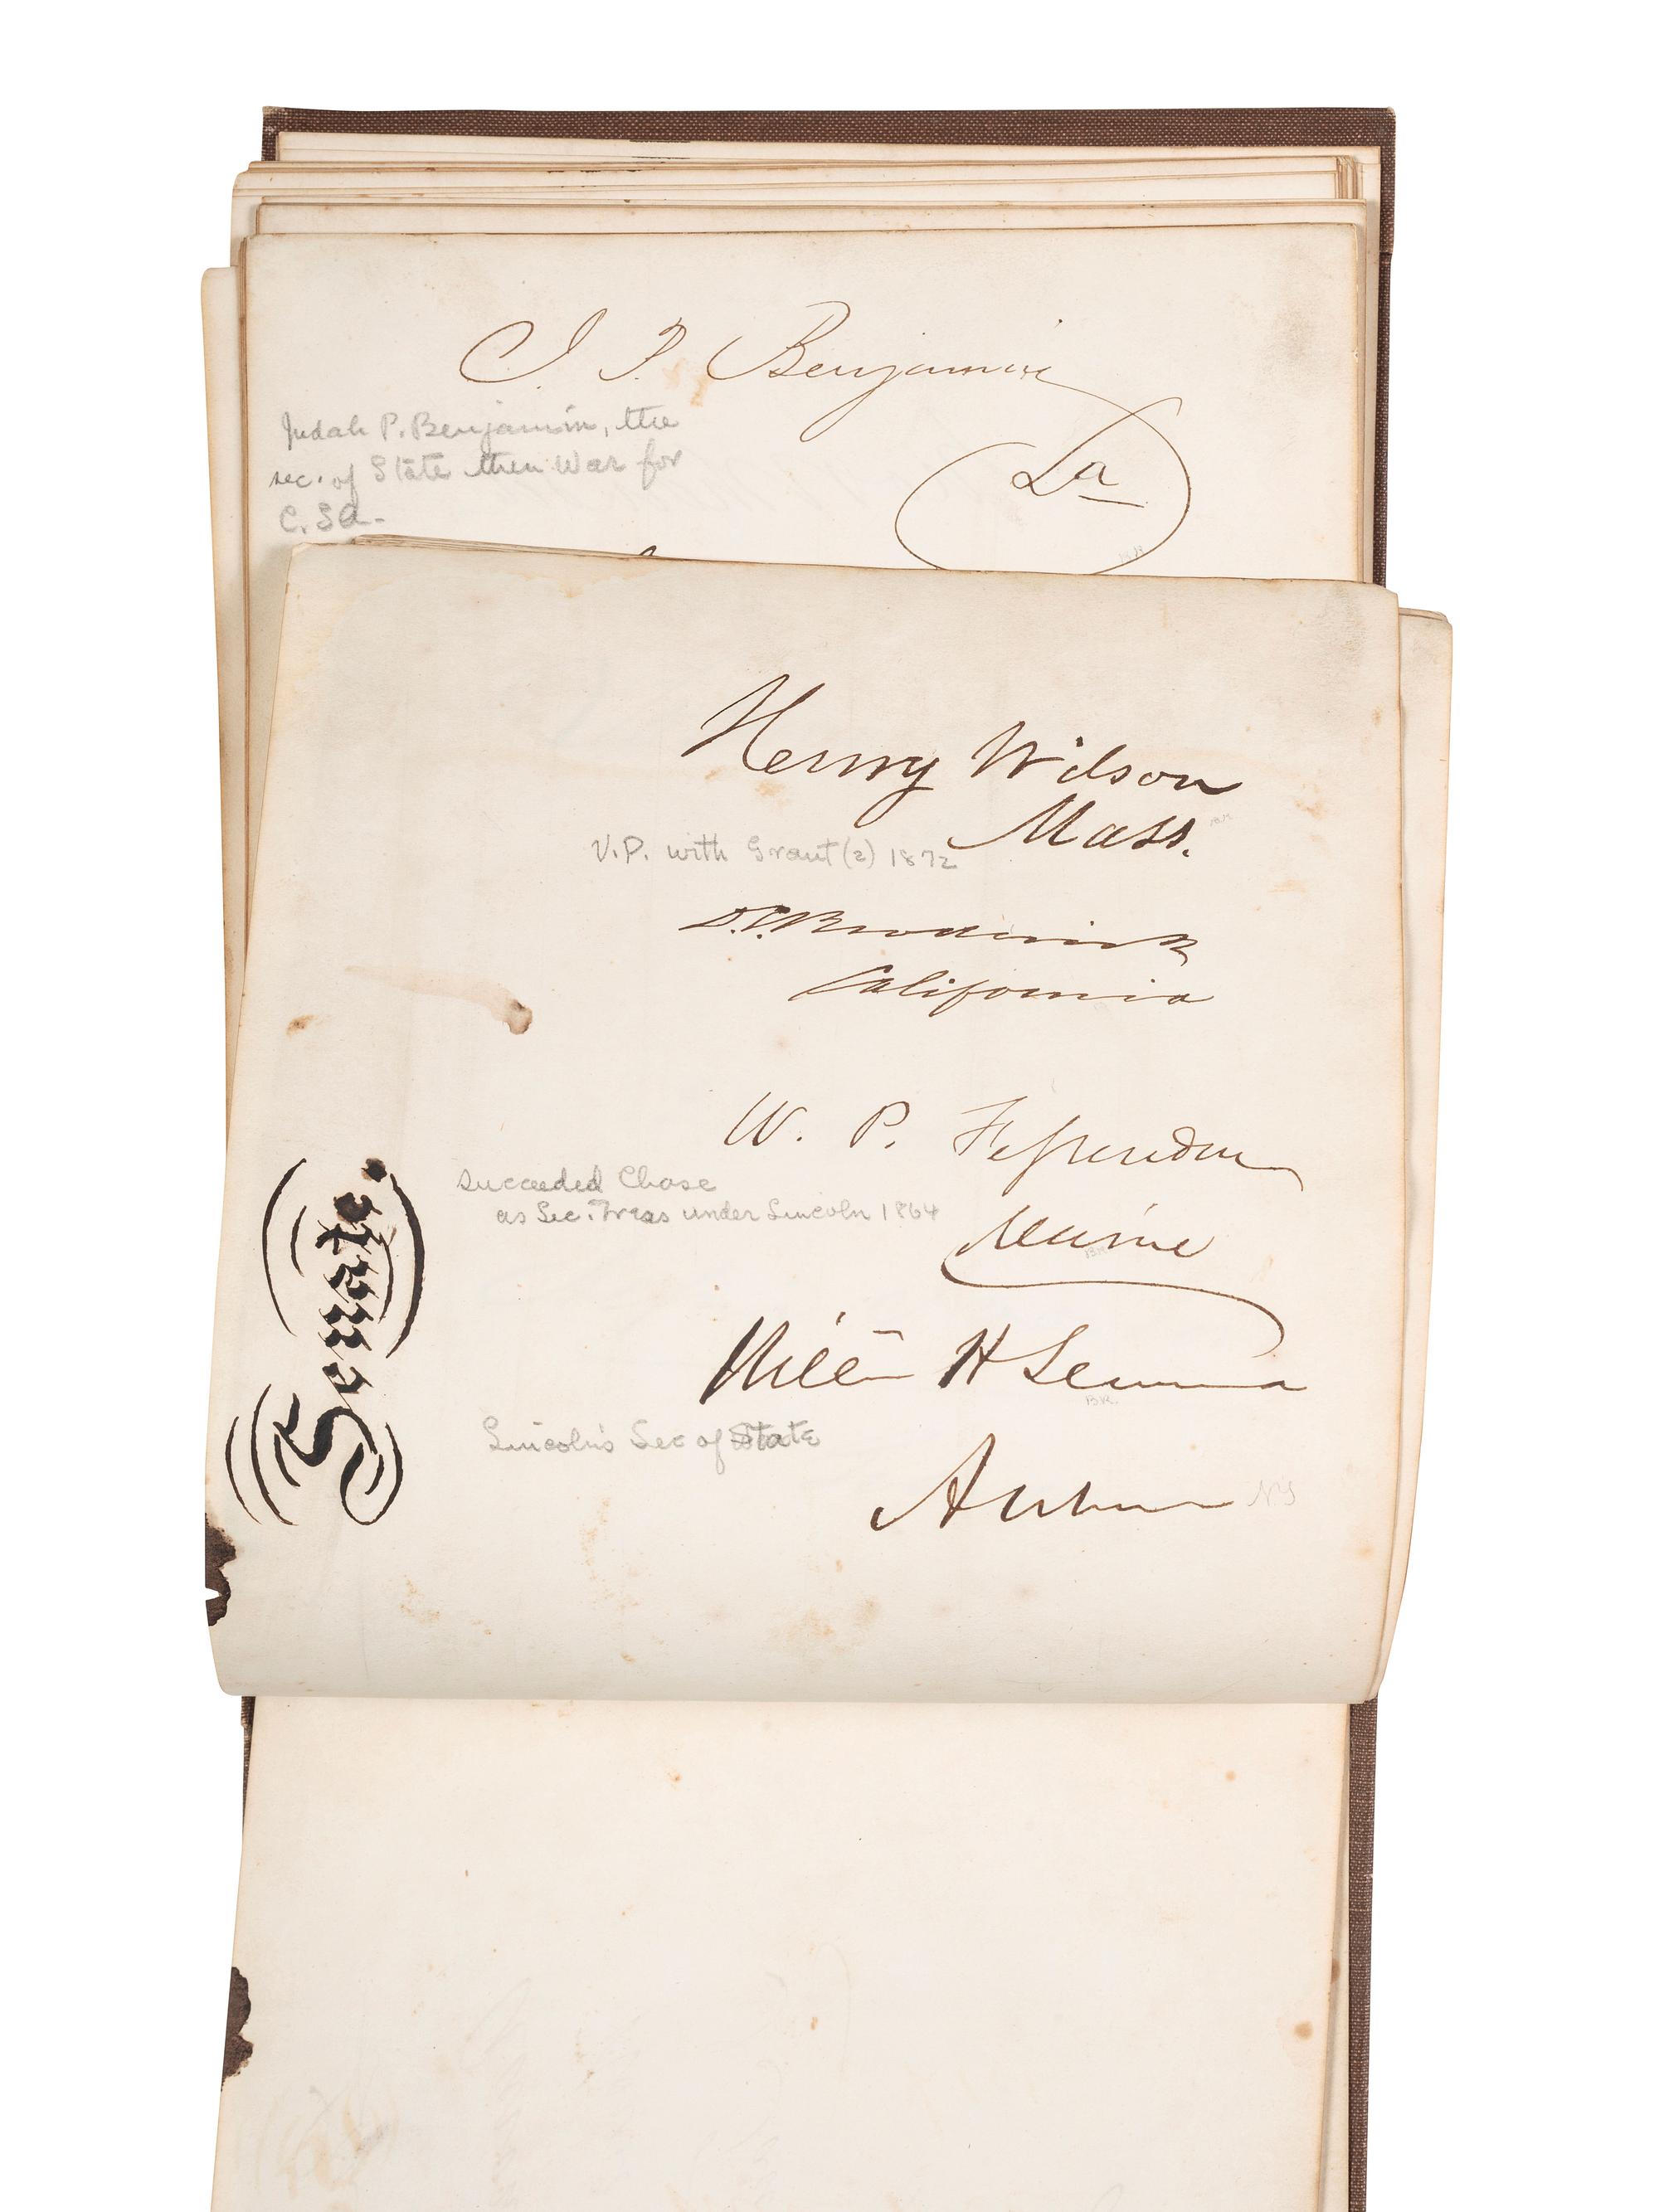 J. P. Benjamin
La
Judah P. Benjamin, the
sec. of State then War for
C.S.A.
Henry Wilson
Mass.
V.P. with Grant (2) 1872
D.C. Broderick
California
W. P. Fessenden
Maine
succeeded Chase
as Sec. Treas under Lincoln 1864
Senate.
Willm H Sewa
Lincoln's Sec of State
Auburn
NY